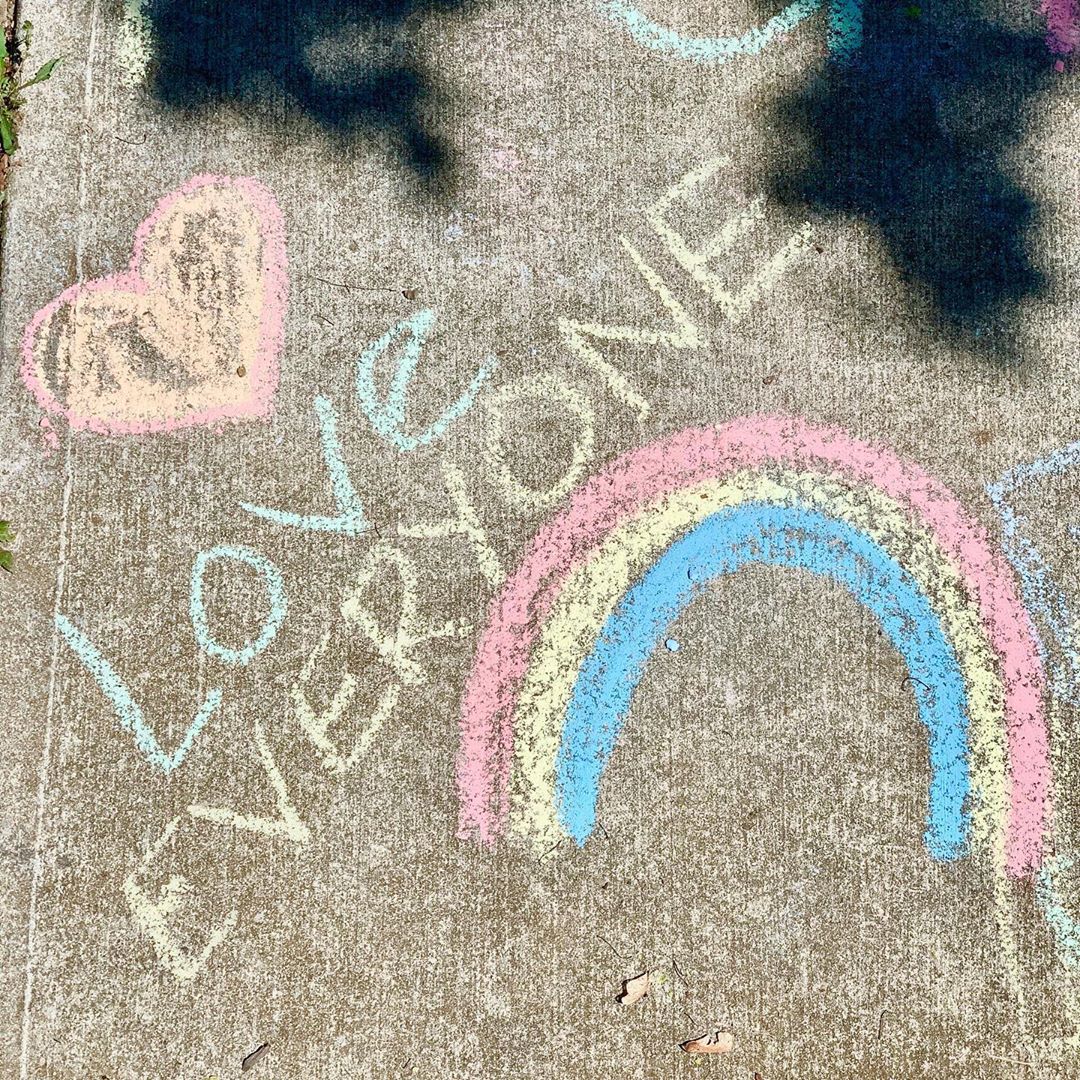 LOVe
EVERYONE